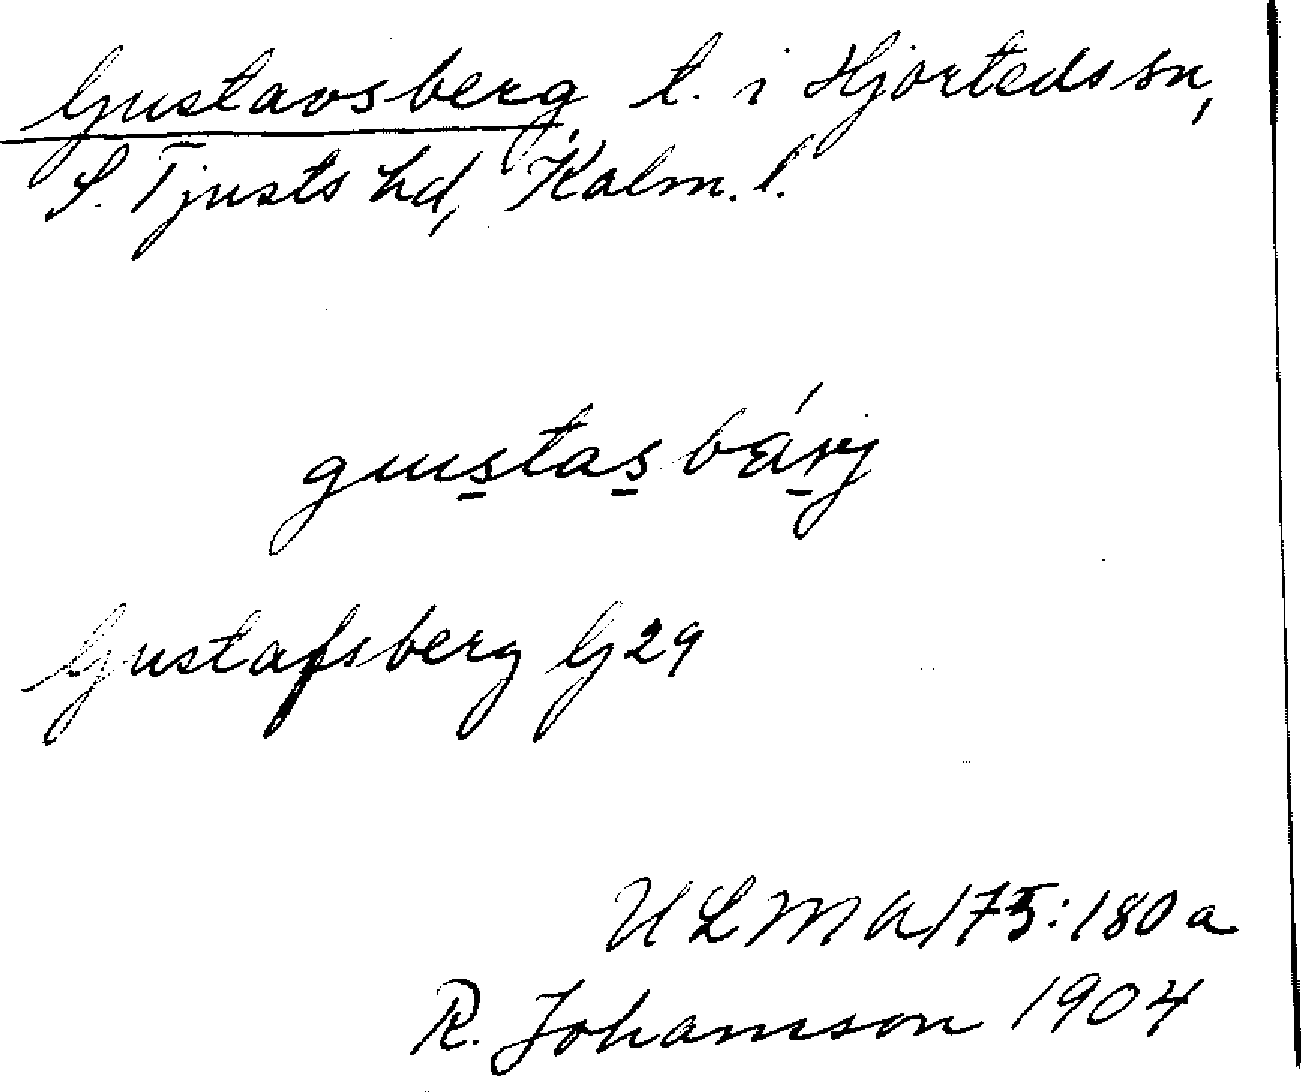 Gustavsberg t. i Hjorteds sn,
S. Tjusts hd, Kalm. l.
gustasbärj
Gustafsberg G 29
ULMA 175:180a
R. Johanson 1904